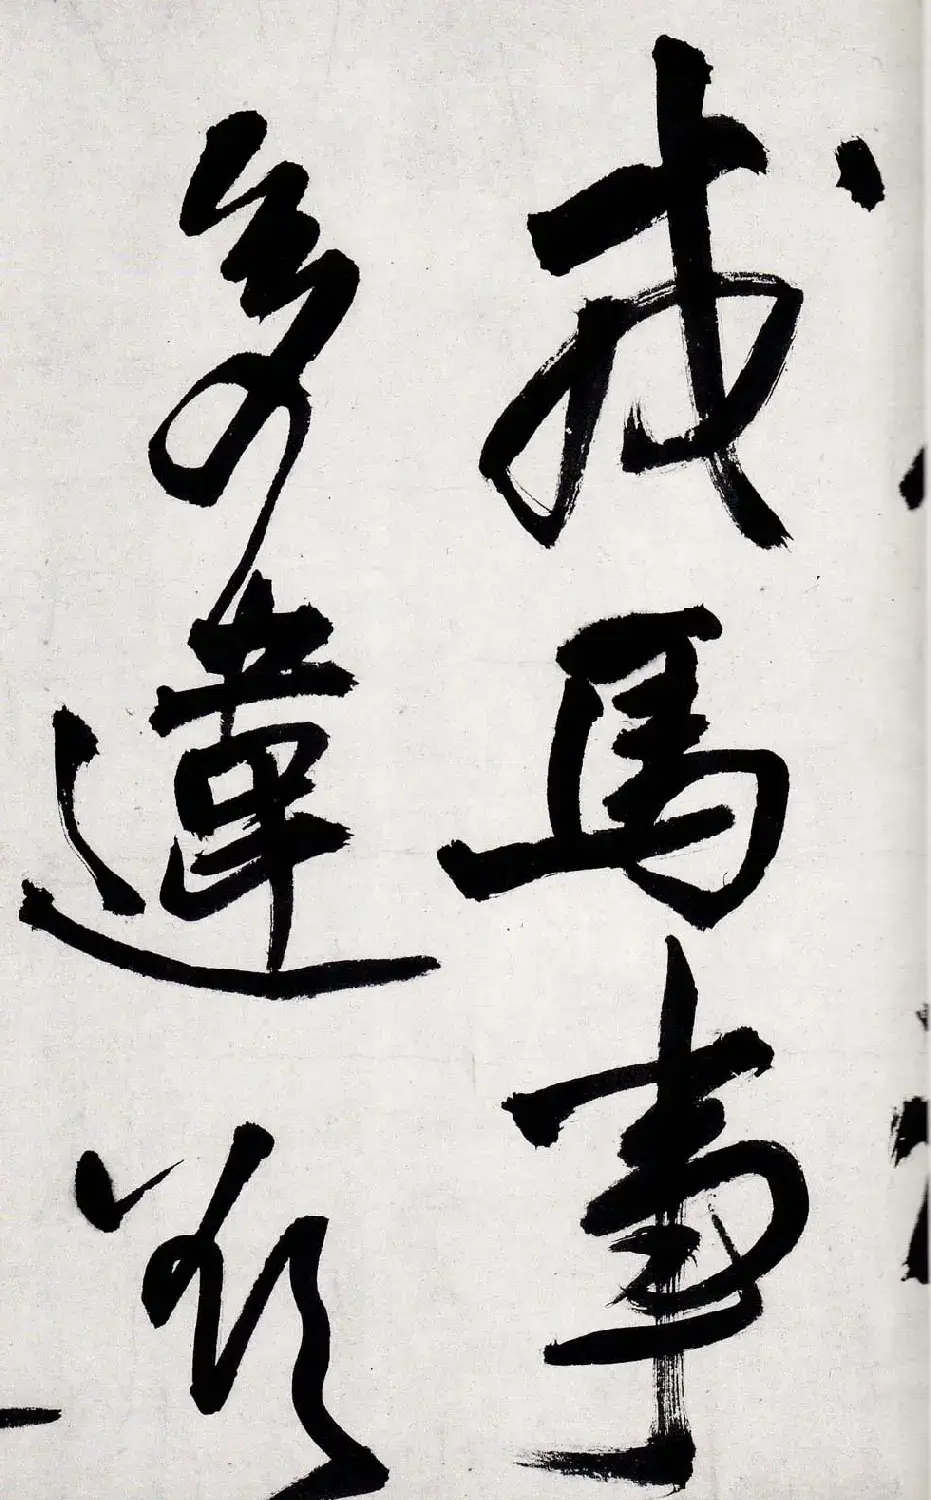 戎馬事
多違欲